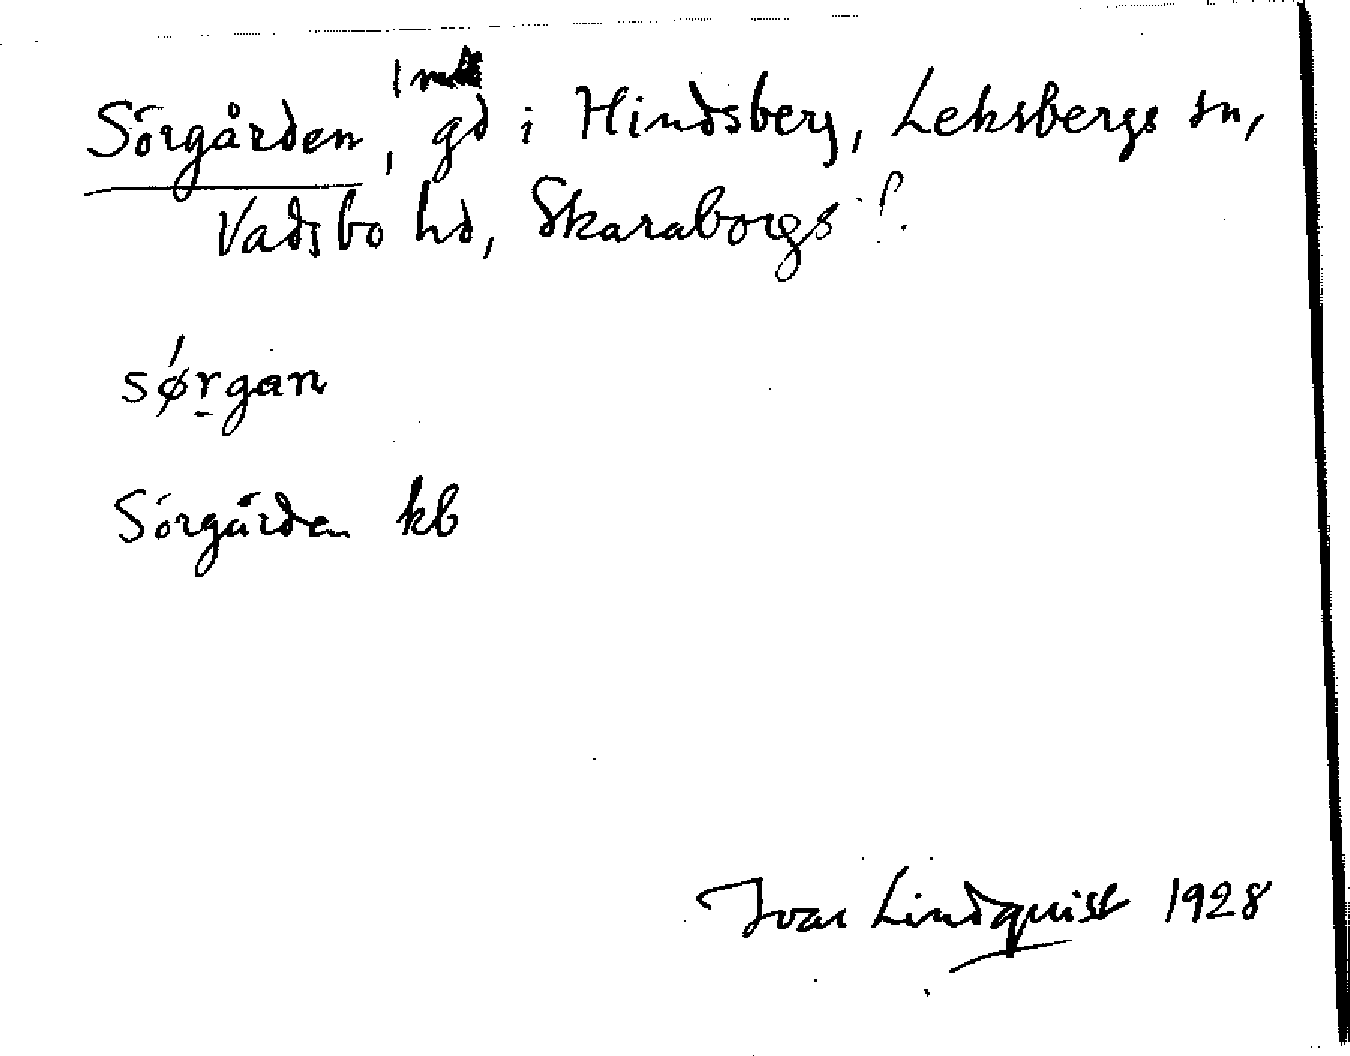 Sörgården, 1 mtl gd i Hindsberg, Leksbergs sn,
Vadsbo hd, Skaraborgs l.
sǿrgan
Sörgården kb
Ivar Lindquist 1928